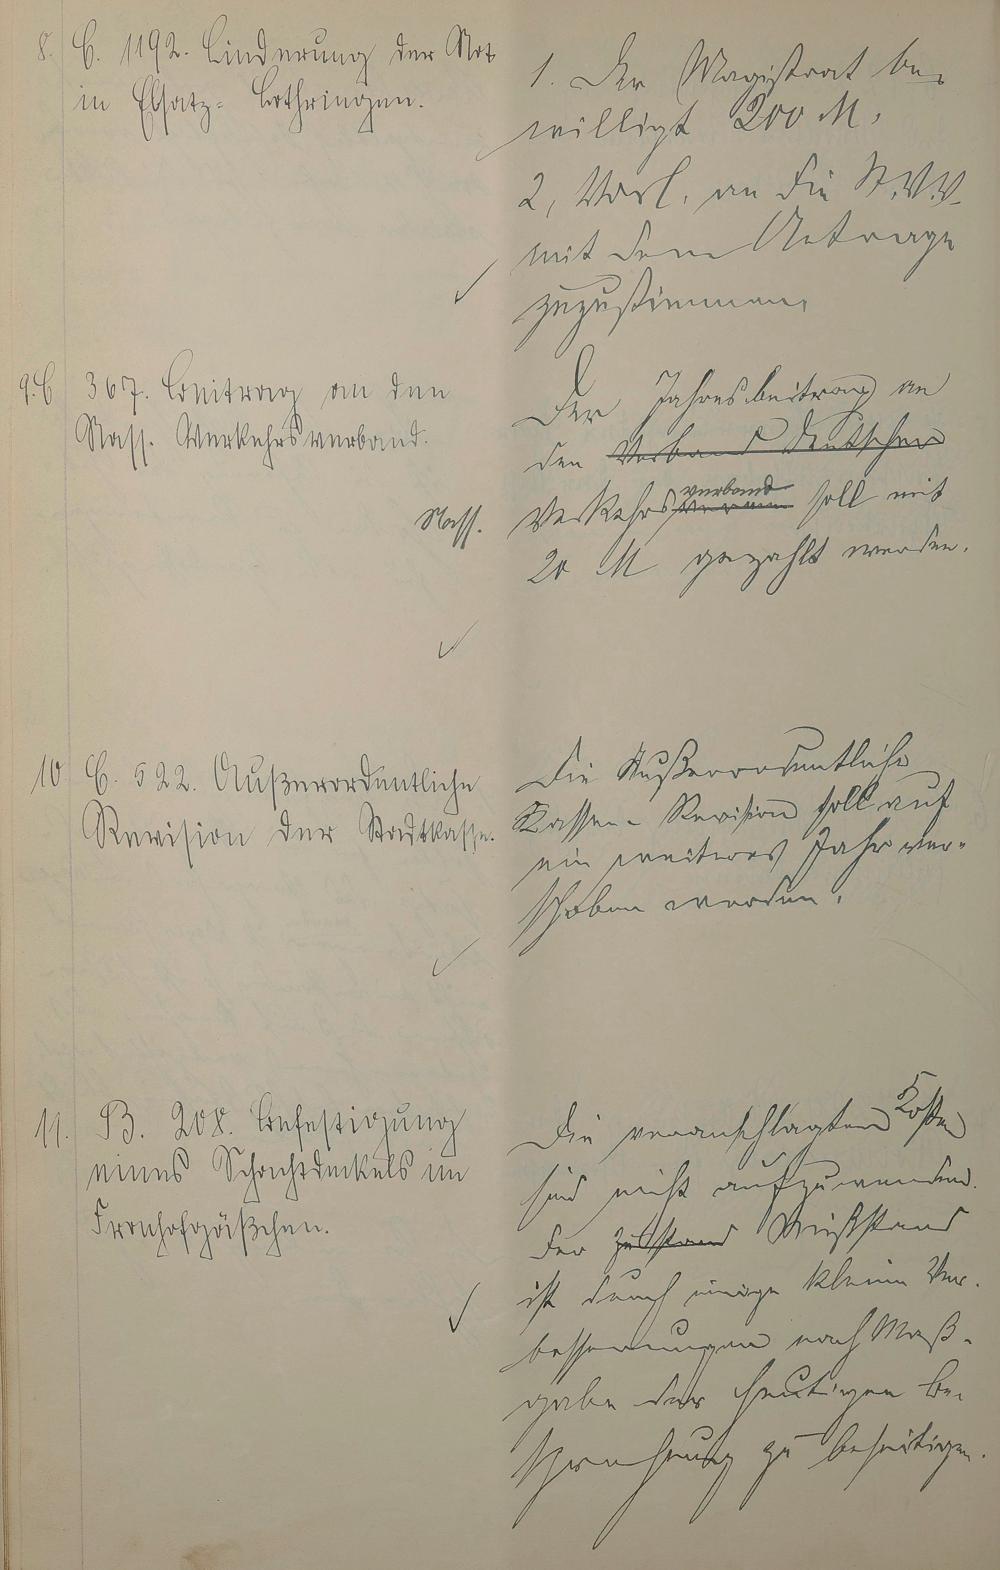 8. C. 1192. Linderung der Not
in Elsatz-Lothringen.
1. Der Magistrat be-
willigt 200 M.
2, Vorl. an die St.V.V.
mit dem Antrage
zuzustimmen.
9. C 367. Beitrag an den
Nass. Verkehrsverband.
Der Jahresbeitrag an
den Verband Deutscher
Nass. Verkehrsverband soll mit
20 M gezahlt werden.
10 C. 522. Außerordentliche
Revision der Stadtkasse.
Die Außerordentliche
Kassen-Revision soll auf
ein weiteres Jahr ver-
schoben werden.
11. B. 208. Befestigung
eines Schachtdeckels im
Fronhofgäßchen.
Die veranschlagten Kosten
sind nicht aufzuwenden.
Der Zustand Mißstand
ist durch einige kleine Ver-
besserungen nach Maß-
gabe der heutigen Be-
sprechung zu beseitigen.